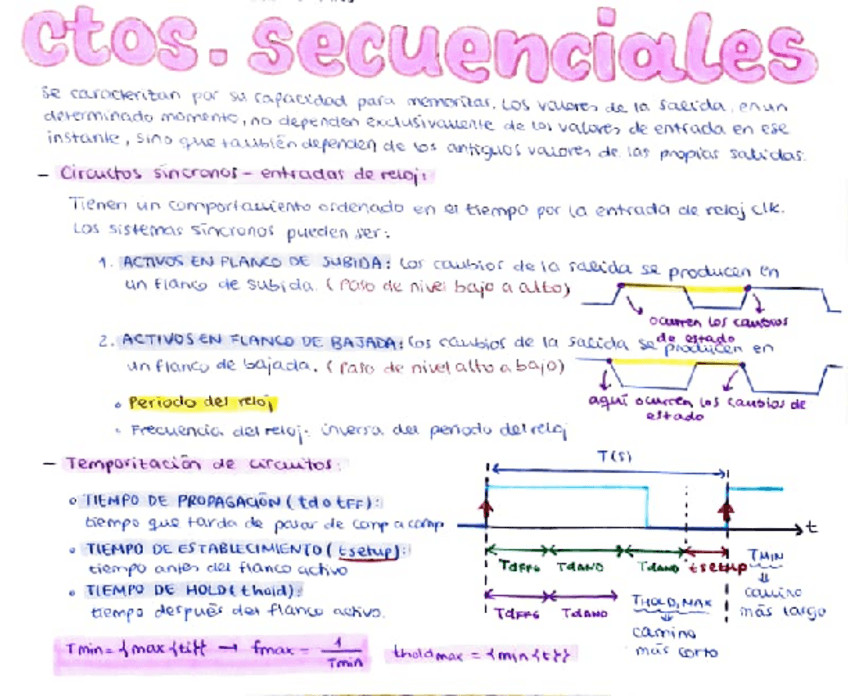 ctos. secuenciales
Se caracterizan por su capacidad para memorizar. Los valores de la salida, en un
determinado momento, no dependen exclusivamente de los valores de entrada en ese
instante, sino que también dependen de los antiguos valores de las propias salidas.
- Circuitos síncronos - entradas de reloj:
Tienen un comportamiento ordenado en el tiempo por la entrada de reloj clk.
Los sistemas síncronos pueden ser:
1. ACTIVOS EN FLANCO DE SUBIDA: Los cambios de la salida se producen en
un flanco de subida. (Paso de nivel bajo a alto)
ocurren los cambios
de estado
2. ACTIVOS EN FLANCO DE BAJADA: Los cambios de la salida se producen en
un flanco de bajada. (Paso de nivel alto a bajo)
aquí ocurren los cambios de
estado
• Periodo del reloj
• Frecuencia del reloj: inversa del periodo del reloj
- Temporización de circuitos:
T(s)
• TIEMPO DE PROPAGACIÓN (td o tFF):
tiempo que tarda de pasar de comp a comp
t
• TIEMPO DE ESTABLECIMIENTO (tsetup):
tiempo antes del flanco activo
TdFFG TdAND TdAND tsetup TMIN
⇓
camino
más largo
• TIEMPO DE HOLD (thold):
tiempo después del flanco activo.
TdFFG TdAND THOLD,MAX
⇓
camino
más corto
Tmin = {max{ti}} → fmax = 1/Tmin
tholdmax = {min{t}}